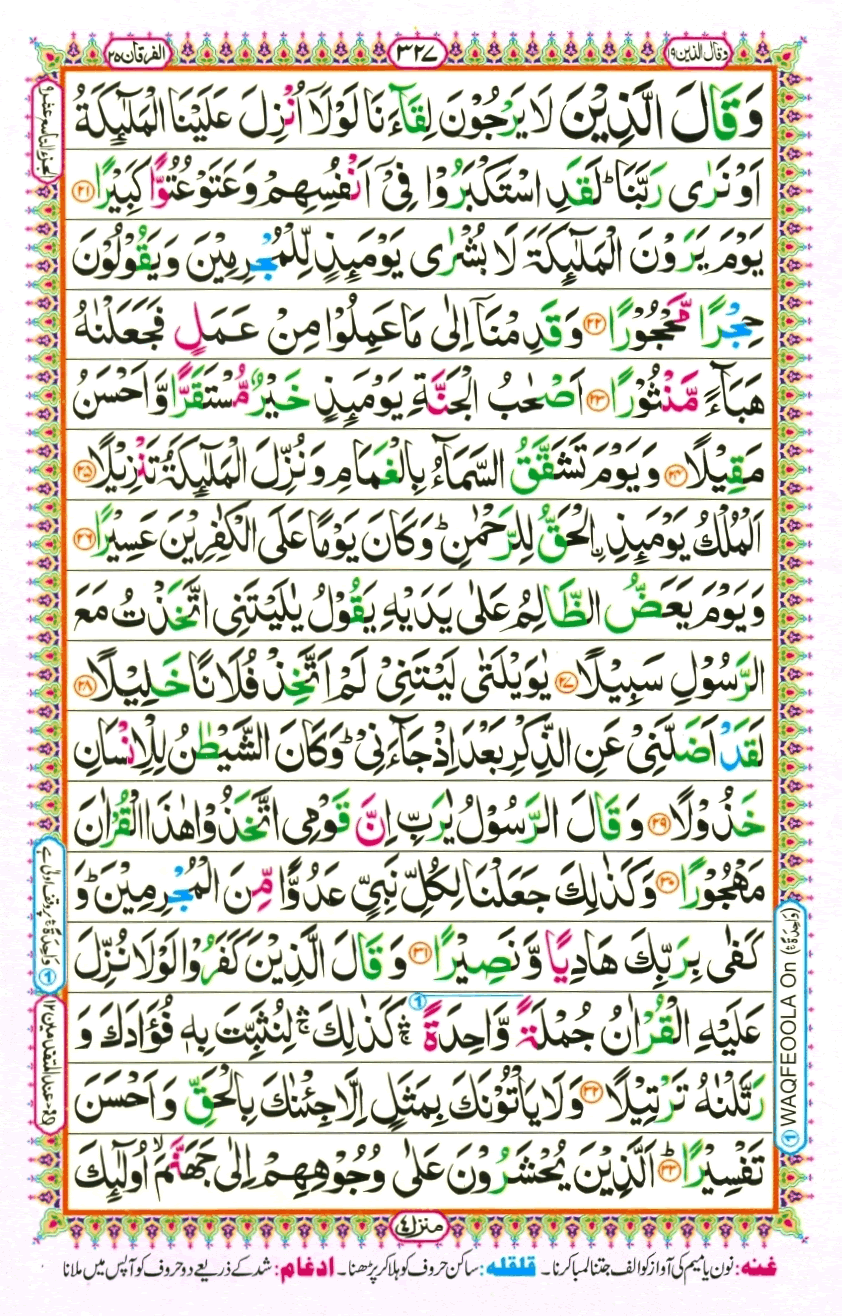 وقال الذین ۱۹
۳۲۷
الفرقان ۲۵
وَقَالَ الَّذِیْنَ لَا یَرْجُوْنَ لِقَآءَنَا لَوْلَاۤ اُنْزِلَ عَلَیْنَا الْمَلٰٓىِٕكَةُ
اَوْ نَرٰی رَبَّنَا ؕ لَقَدِ اسْتَكْبَرُوْا فِیْۤ اَنْفُسِهِمْ وَ عَتَوْ عُتُوًّا كَبِیْرًا ۝۲۱
یَوْمَ یَرَوْنَ الْمَلٰٓىِٕكَةَ لَا بُشْرٰی یَوْمَىِٕذٍ لِّلْمُجْرِمِیْنَ وَ یَقُوْلُوْنَ
حِجْرًا مَّحْجُوْرًا ۝۲۲ وَ قَدِمْنَاۤ اِلٰی مَا عَمِلُوْا مِنْ عَمَلٍ فَجَعَلْنٰهُ
هَبَآءً مَّنْثُوْرًا ۝۲۳ اَصْحٰبُ الْجَنَّةِ یَوْمَىِٕذٍ خَیْرٌ مُّسْتَقَرًّا وَّ اَحْسَنُ
مَقِیْلًا ۝۲۴ وَ یَوْمَ تَشَقَّقُ السَّمَآءُ بِالْغَمَامِ وَ نُزِّلَ الْمَلٰٓىِٕكَةُ تَنْزِیْلًا ۝۲۵
اَلْمُلْكُ یَوْمَىِٕذِ ِ۟الْحَقُّ لِلرَّحْمٰنِ ؕ وَ كَانَ یَوْمًا عَلَی الْكٰفِرِیْنَ عَسِیْرًا ۝۲۶
وَ یَوْمَ یَعَضُّ الظَّالِمُ عَلٰی یَدَیْهِ یَقُوْلُ یٰلَیْتَنِی اتَّخَذْتُ مَعَ
الرَّسُوْلِ سَبِیْلًا ۝۲۷ یٰوَیْلَتٰی لَیْتَنِیْ لَمْ اَتَّخِذْ فُلَانًا خَلِیْلًا ۝۲۸
لَقَدْ اَضَلَّنِیْ عَنِ الذِّكْرِ بَعْدَ اِذْ جَآءَنِیْ ؕ وَ كَانَ الشَّیْطٰنُ لِلْاِنْسَانِ
خَذُوْلًا ۝۲۹ وَ قَالَ الرَّسُوْلُ یٰرَبِّ اِنَّ قَوْمِی اتَّخَذُوْا هٰذَا الْقُرْاٰنَ
مَهْجُوْرًا ۝۳۰ وَ كَذٰلِكَ جَعَلْنَا لِكُلِّ نَبِیٍّ عَدُوًّا مِّنَ الْمُجْرِمِیْنَ ؕ وَ
كَفٰی بِرَبِّكَ هَادِیًا وَّ نَصِیْرًا ۝۳۱ وَ قَالَ الَّذِیْنَ كَفَرُوْا لَوْلَا نُزِّلَ
عَلَیْهِ الْقُرْاٰنُ جُمْلَةً وَّاحِدَةً ۛۚ كَذٰلِكَ ۛۚ لِنُثَبِّتَ بِهٖ فُؤَادَكَ وَ
رَتَّلْنٰهُ تَرْتِیْلًا ۝۳۲ وَ لَا یَاْتُوْنَكَ بِمَثَلٍ اِلَّا جِئْنٰكَ بِالْحَقِّ وَ اَحْسَنَ
تَفْسِیْرًا ؕ۝۳۳ اَلَّذِیْنَ یُحْشَرُوْنَ عَلٰی وُجُوْهِهِمْ اِلٰی جَهَنَّمَ ۙ اُولٰٓىِٕكَ
الجزء التاسع عشر ۱۹
۱ وَاحِدَةً ۛۚ پر وقف اولیٰ ہے
مع ۵ عند المتقدمین ۱۲
۱ WAQFEOOLA On (وَاحِدَةً ۛۚ)
منزل ۴
غنہ: نون یا میم کی آواز کو الف جتنا لمبا کرنا۔ قلقلہ: ساکن حروف کو ہلا کر پڑھنا۔ ادغام: شد کے ذریعے دو حروف کو آپس میں ملانا